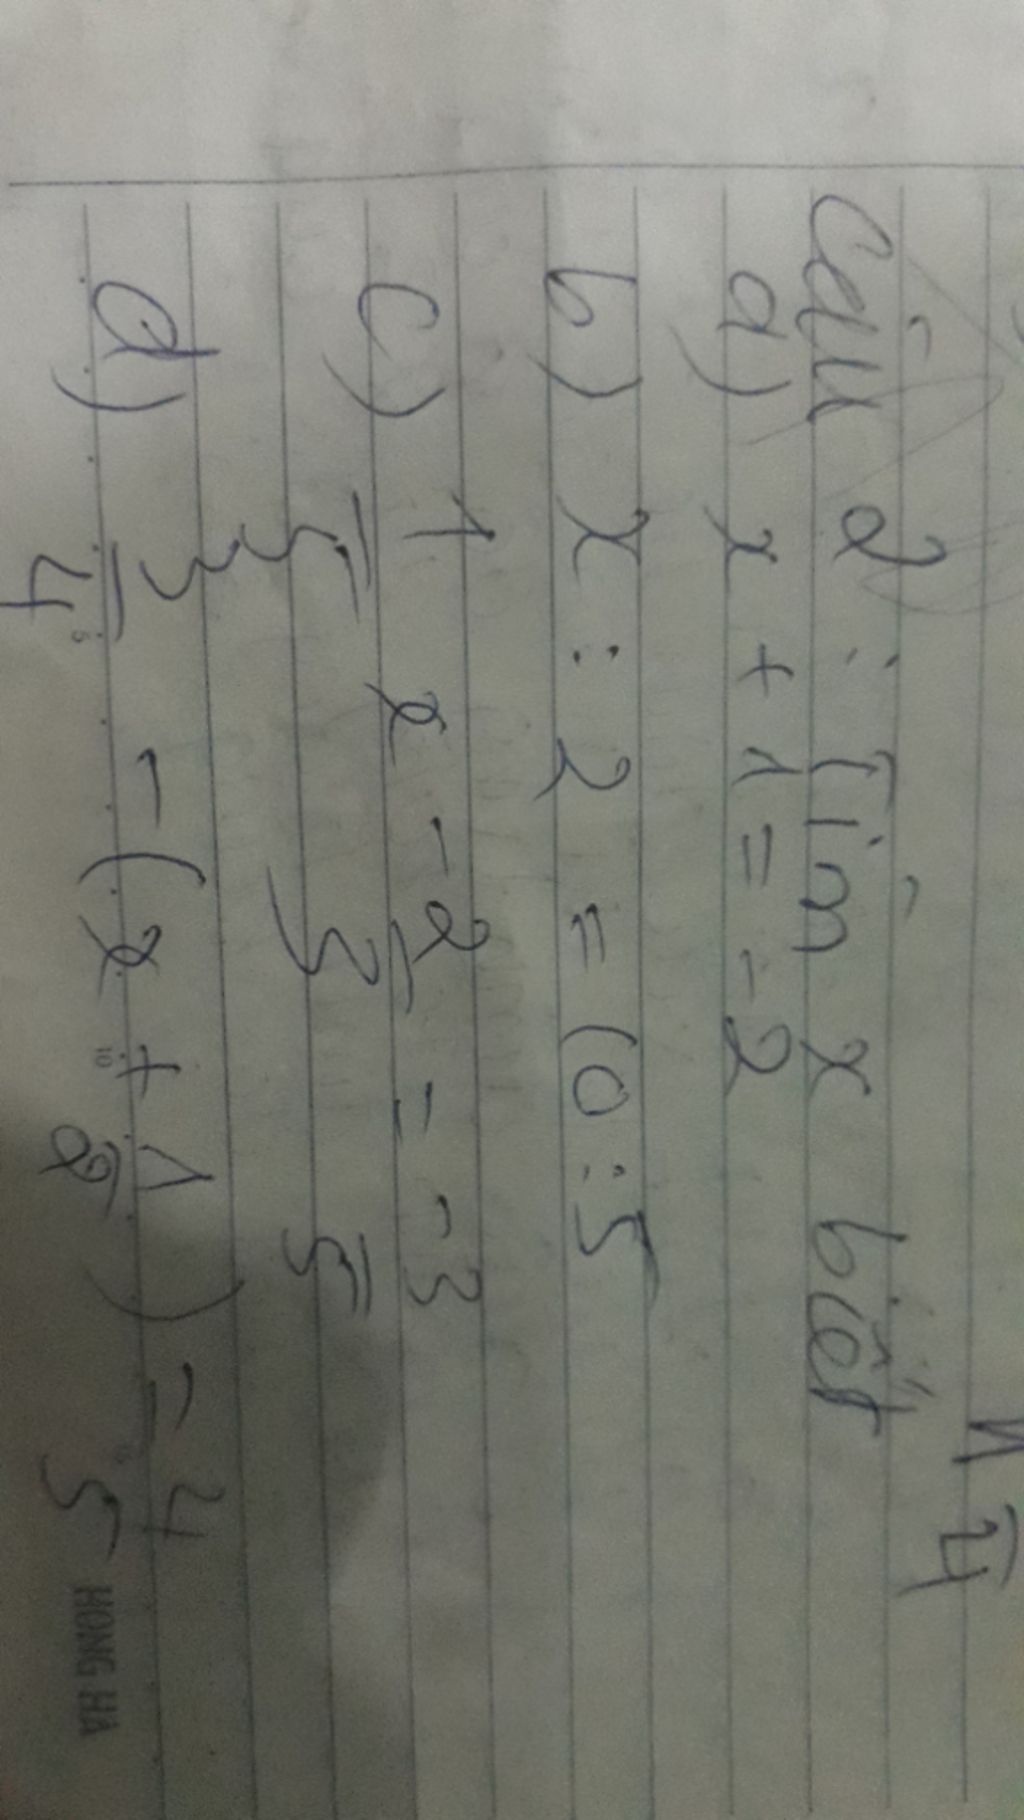 4
Câu 2 : Tìm x biết
a) x + 1 = -2
b) x : 2 = 10 : 5
c) 1/5 x - 2/3 = -3/5
d) 3/4 - (x + 1/2) = 4/5
5 10
HONG HA